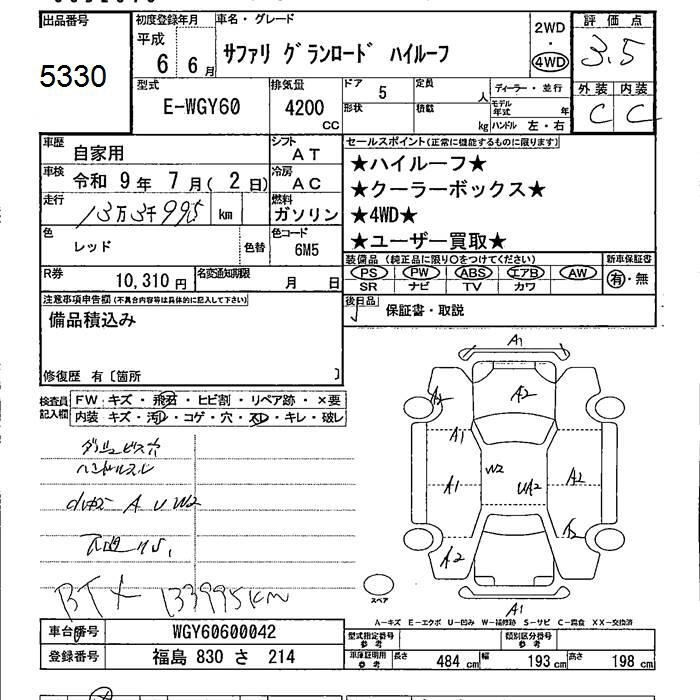 出品番号
5330
初度登録年月
平成
6 6月
車名・グレード
サファリ グランロード ハイルーフ
2WD
・
4WD
評価点
3.5
外装 内装
C C
型式
E-WGY60
排気量
4200
CC
ドア 5
形状
定員 人
積載 kg
ディーラー・並行
モデル年式 年
ハンドル 左・右
車歴
自家用
シフト
AT
車検
令和 9年 7月( 2日)
冷房
AC
走行
13万3千995 km
燃料
ガソリン
色
レッド
色替
色コード
6M5
R券
10,310円
名変通知期限
月 日
セールスポイント(正常に機能するものに限ります)
★ハイルーフ★
★クーラーボックス★
★4WD★
★ユーザー買取★
装備品(純正品に限り○をつけてください)
PS PW ABS エアB AW
SR ナビ TV カワ
新車保証書
有・無
後日品
保証書・取説
注意事項申告欄(不具合内容等は具体的に記入して下さい)
備品積込み
修復歴 有〔箇所 〕
検査員記入欄
FW:キズ・飛石・ヒビ割・リペア跡・×要
内装:キズ・汚レ・コゲ・穴・スレ・キレ・破レ
ダッシュビス穴
ハンドルスレ
A U W2
BT+ 133995km
A1
A2
A2
A1
A1
W2
UA2
A2
A2
A2
A1
スペア
A-キズ E-エクボ U-凹み W-補修跡 S-サビ C-腐食 XX-交換済
車台番号
WGY60600042
登録番号
福島 830 さ 214
型式指定番号
参考
類別区分番号
参考
車庫証明用
参考
長さ 484 cm 幅 193 cm 高さ 198 cm